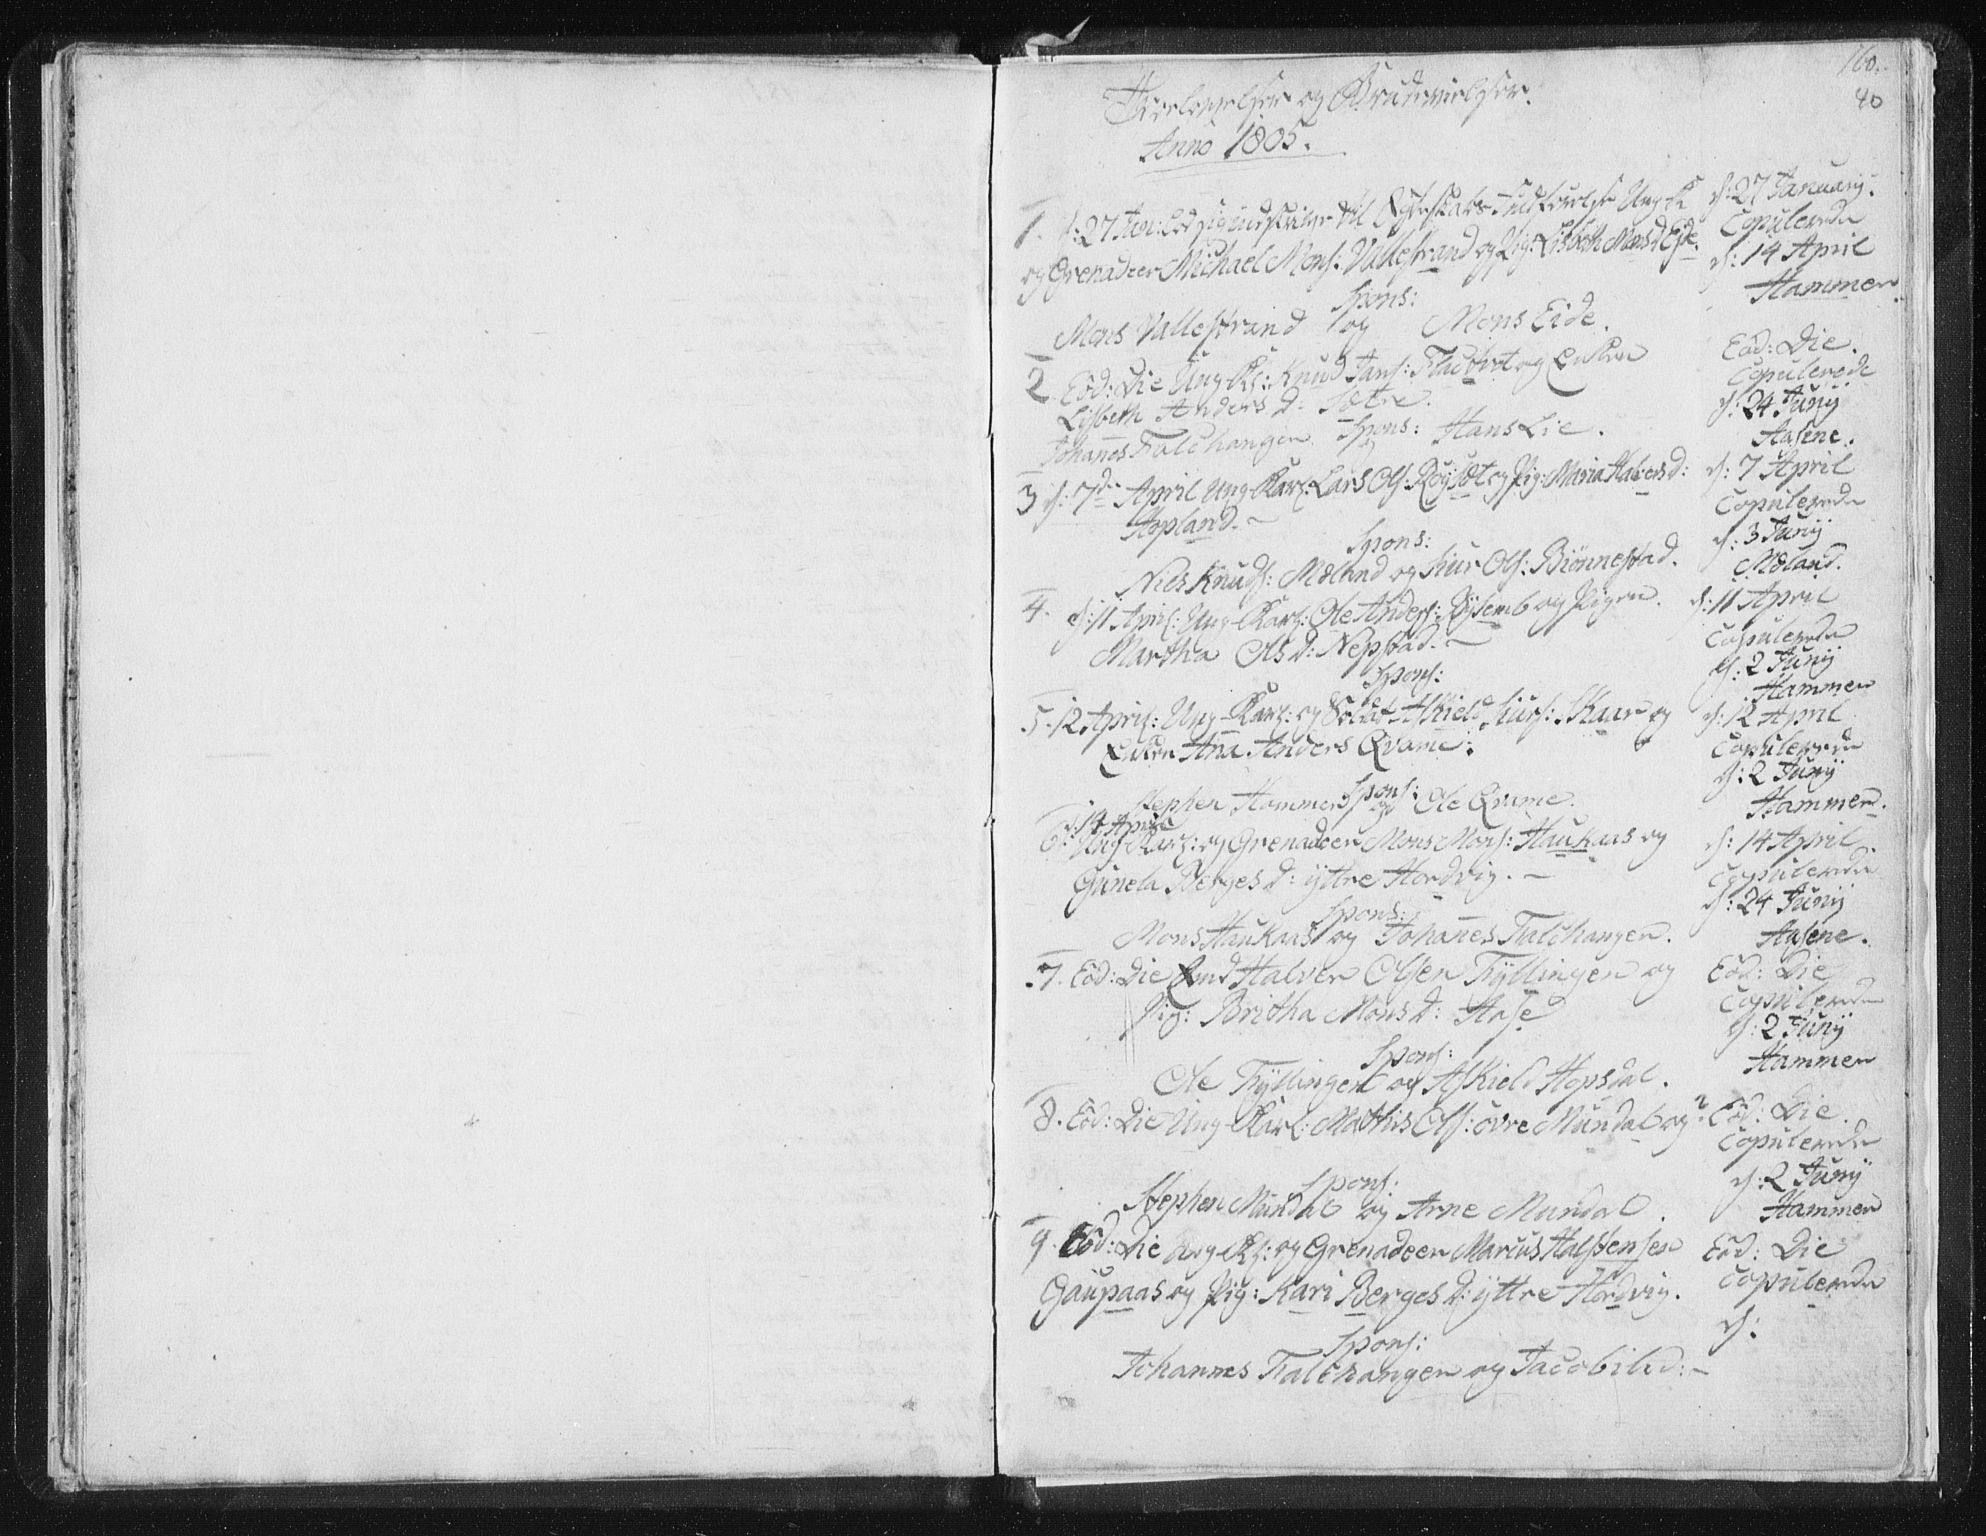 160.
40
Trolovelser og Brudevielser.
Anno 1805.
1. d: 27 Jan: lod sig indskrive til Egteskabs Fuldbyrdelse Ung K
og Grenadeer Michael Mons: Vallestrand og Pig: Lisbeth Monsd Eide.
Spons:
Mons Vallestrand og Mons Eide.
d: 27 January.
Copulerede
d: 14 April
Hammer
2. Eod: Die Ung K: Knud Jans: Fladtvet og Enken
Lisbeth Anders D: Sætre.
Spons:
Johanes Falchangen og Hans Lie.
Eod: Die.
Copulerede
d: 24 Junÿ
Aasene.
3 d: 7d April Ung Karl: Lars Ols: Røysæt og Pig: Maria Halvers d:
Hopland.
Spons:
Niels Knuds: Mæland og Siur Ols: Biönnestad.
d: 7 April
Copulerede
d: 3 Junÿ
Mæland.
4. d: 11 April: Ung Karl: Ole Anders: Rÿlemb og Pigen
Martha Ols D: Nepstad.
Spons:
d: 11 April
Copulerede
d: 2 Junÿ
Hammer
5. 12 April: Ung Karl: og Soldat Askield Siurs: Skaar og
Enken Ana Anders Qvame:
Spons:
Stephen Hammer og Ole Qvame.
d: 12 April
Copulerede
d: 2 Junÿ
Hammer.
6. d: 14 April
Ung Karl: og Grenadeer Mons Mons: Haukaas og
Gunela Berges D: ÿttre Hordvig.
Spons:
Mons Haukaas og Johanes Falchangen.
d: 14 April.
Copulerede
d: 24 Junÿ
Aasene.
7. Eod: Die Enkd Halver Olsen Tÿllingen og
Pig: Britha Mons D: Aase
Spons:
Ole Tÿllingen og Askield Hopsdal.
Eod: Die
Copulerede
d: 2 Junÿ
Hammer
8. Eod: Die Ung Karl: Mathis Ols: övre Mundal og?
Spons:
Stephen Mundal og Arne Mundal.
Eod: Die.
Copulerede
d: 2 Junÿ
Hammer
9. Eod: Die Ung K: og Grenadeer Marcus Halstensen
Gaupaas og Pig: Kari Berges D: ÿttre Hordvig.
Spons:
Johannes Falchangen og Jacob ibid:
Eod: Die
Copulerede
d: